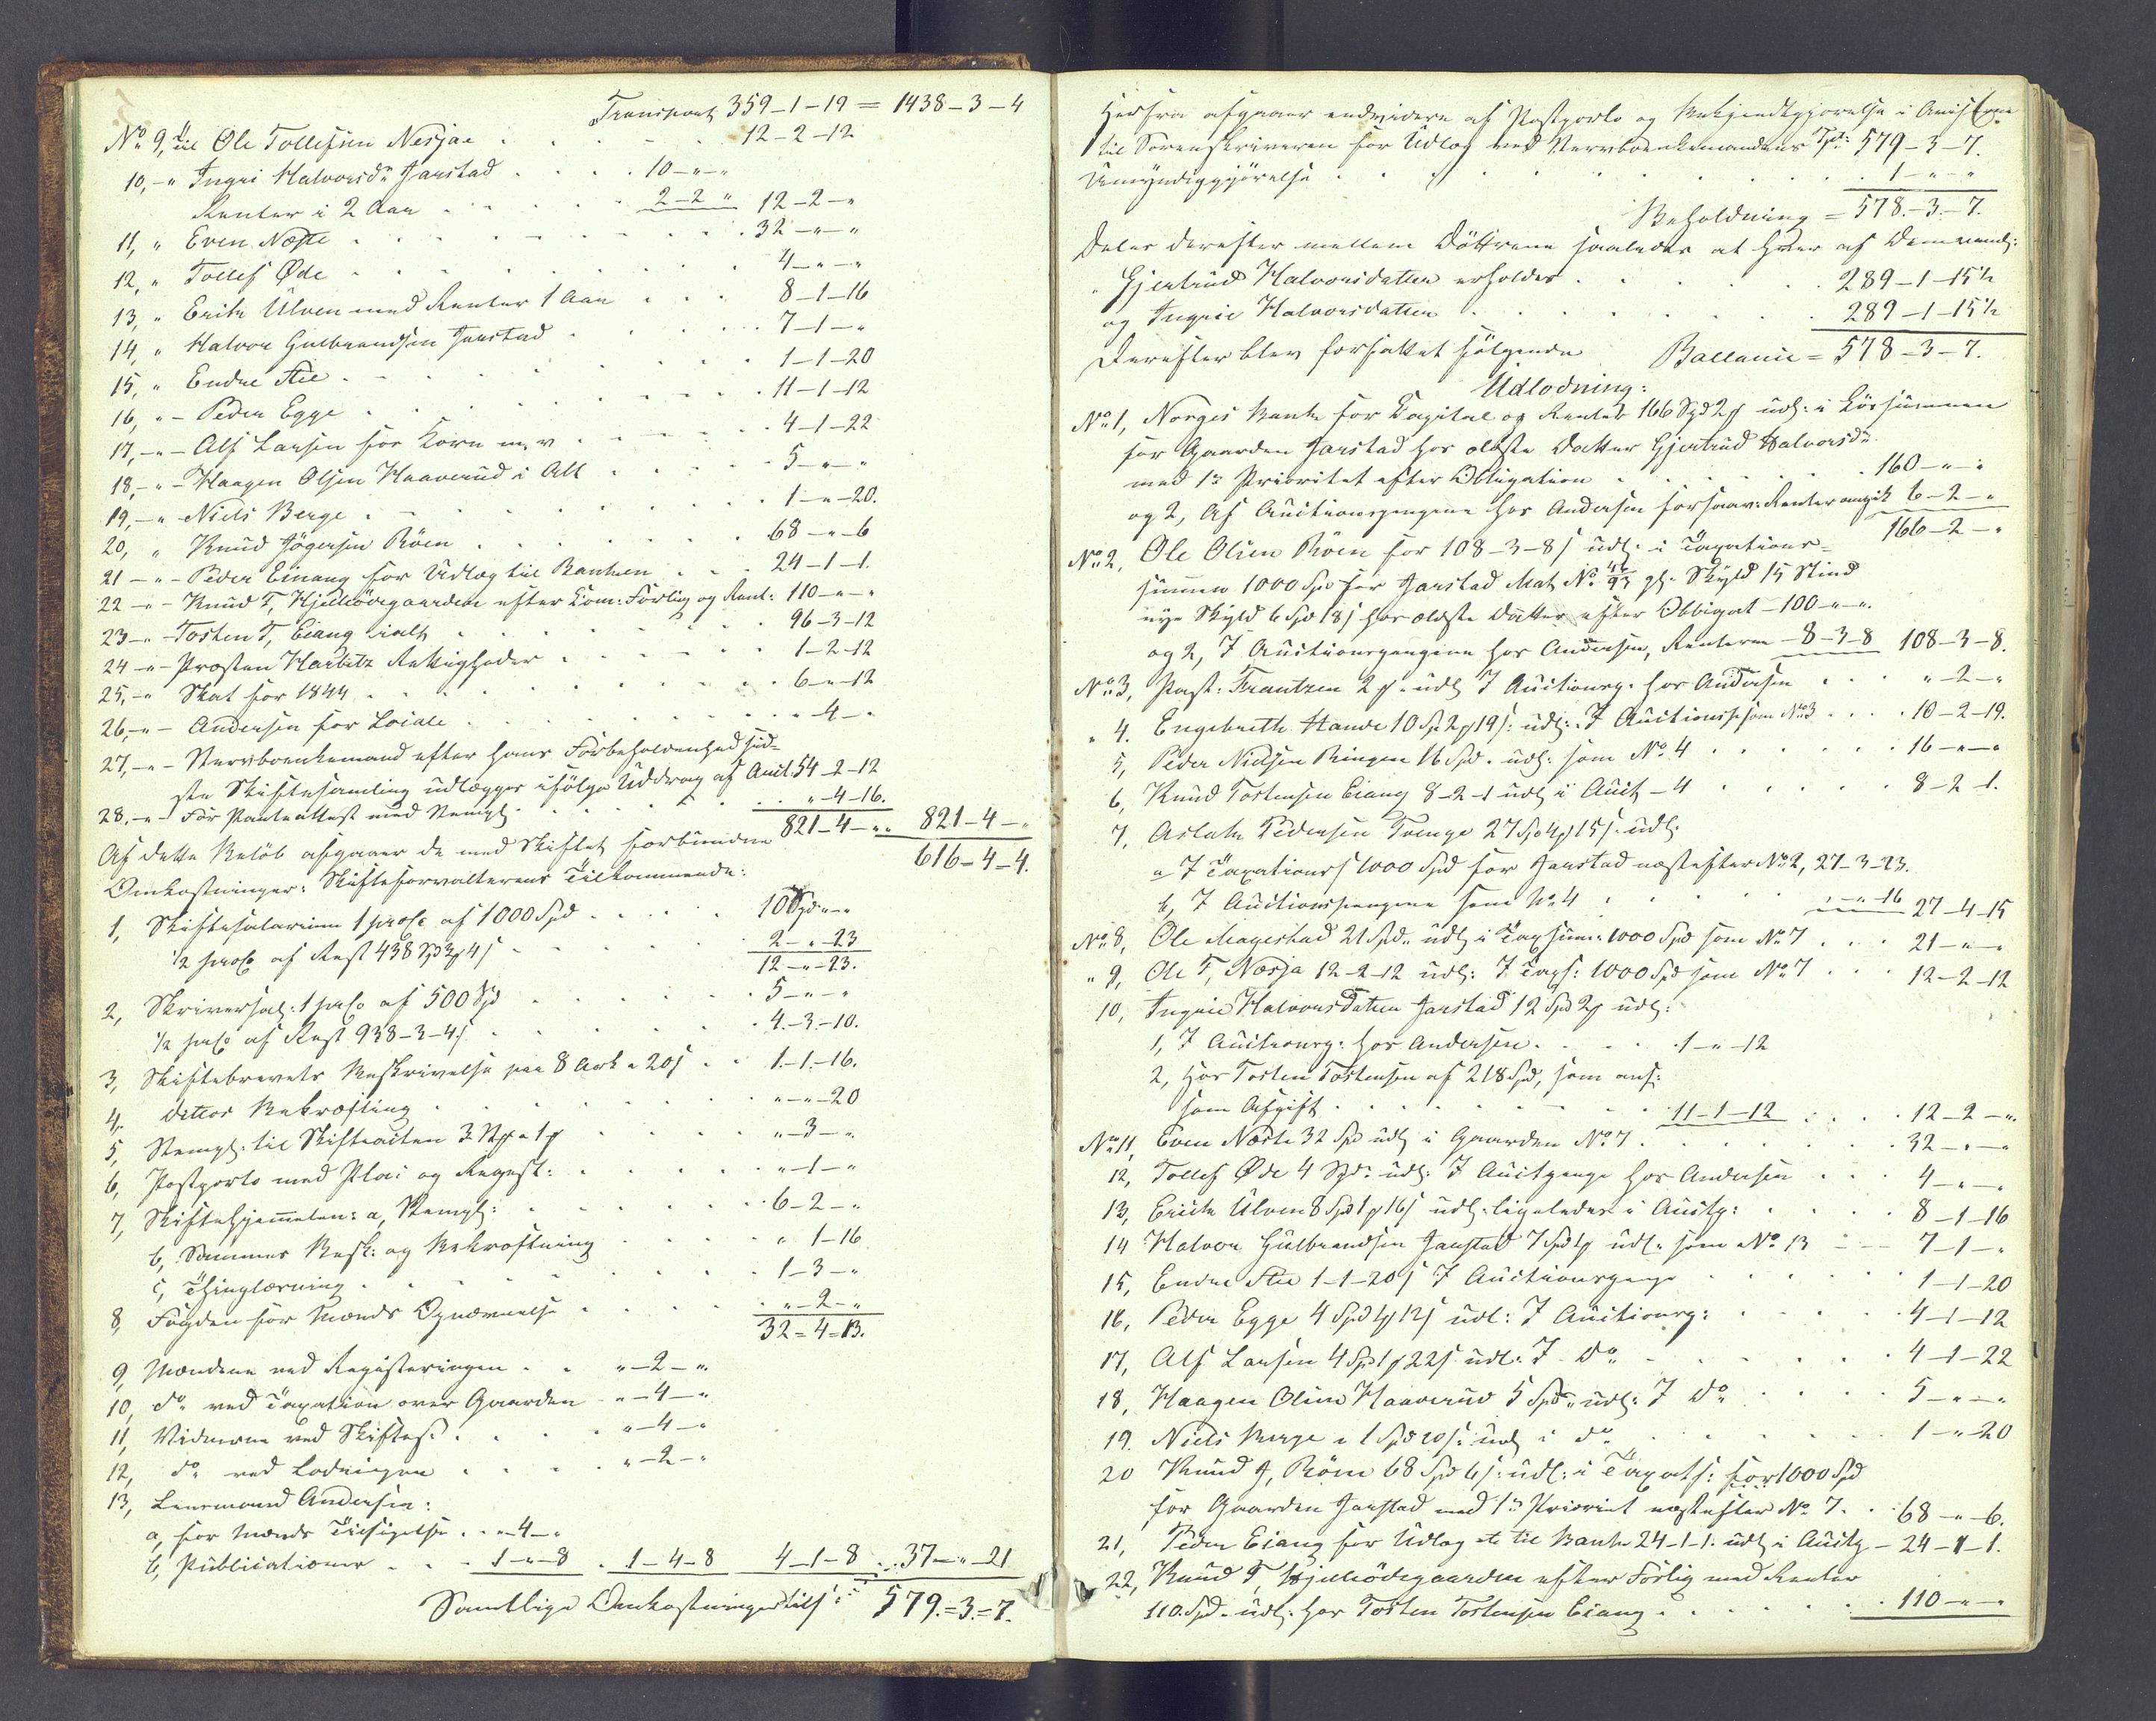 Transport 359-1-19 = 1438-3-4
No 9, til Ole Tollefsen Nesjae . . . 12-2-12
10, - " Ingri Halvorsdr Jarstad . . . 10-"-"
Renter i 2 Aar . . . 2-2-" 12-2-"
11, " Even Næste . . . 32-"-"
12, " Tollef Øde . . . 4-"-"
13, " Erik Ulven med Renter 1 Aar . . . 8-1-16
14, " Halvor Gulbrandsen Jarstad . . . 7-1-"
15, " Endre Stie . . . 1-1-20
16, " - Peder Egge . . . 11-1-12
17, - " - Alf Larsen for Korn m. v. . . . 4-1-22
18, - " - Haagen Olsen Haaverud i Alt . . . 5-"-"
19, - " - Niels Berge . . . 1-"-20.
20, " Knud Jøgersen Röen . . . 68-"-6
21 - " - Peder Einang for Udlæg til Banken . . . 24-1-1.
22 - " - Knud T, Hjelliödegaarden efter Kom: Forlig og Rent: 110-"-"
23 - " - Tosten T, Eiang ialt . . . 96-3-12
24 - " - Præsten Harbitz Rettigheder . . . 1-2-12
25, - " Skat for 1844 . . . 6-"-12
26, - " - Andersen for Locale . . . "-4-"
27, - " - Stervboenkemand efter hans Forbeholdenhed sid-
ste Skiftesamling udlægges ifölge Uddrag af Auct. 54-2-12
28. - " - For Panteattest med Stempl: . . . "-4-16.
821-4-" 821-4-"
Af dette Belöb afgaaer de med Skiftet forbundne 616-4-4.
Omkostninger: Skifteforvalterens Tilkommende:
1, Skiftesalarium 1 proC af 1000 Spd . . . 10 Spd "-"
1/2 proC af Rest 438 Spd 3 4 s . . . 2-"-23
12-"-23.
2, Skriversal: 1 prC af 500 Spd . . . 5-"-"
1/2 prC af Rest 938-3-4 s . . . 4-3-10.
3, Skiftebrevets Beskrivelse paa 8 Ark a 20 s . . 1-1-16.
4, dittos Bekræfting . . . "-"-20
5, Stempl: til Skifteacten 3 a 1 . . . "-3-"
6, Postporto med Plac: og Regest: . . . "-1-"
7, Skiftehjemmelen: a, Stempl: . . . 6-2-"
b, Sammes Besk: og Bekræftning . . . " 1-16
c, Thinglæsning . . . 1-3-"
8, Fogden for Mænds Opnævnelse . . . "-2-"
32=4=13.
9, Mændene ved Registeringen . . "-2-"
10, do ved Taxation over Gaarden - "-4-"
11, Vidnerne ved Skiftet . . . "-4-"
12, do ved Lodningen . . . "-2-"
13, Lensmand Andersen:
a, for Mænds Tilsigelse . . "-4-"
b, Publicationer . . . 1-"-8 . 1-4-8 4-1-8 . . 37-"-21
Samtlige Omkostninger 579.=3=7.
Herfra afgaaer endvidere af Postporto og Bekjendtgjörelse i Aviserne
til Sorenskriveren for Udlæg ved Stervboenkemandens Spd: 579-3-7.
Umyndiggjörelse . . . 1-"-"
Beholdning = 578.-3.-7.
Deles derefter mellem Döttrene saaledes at hver af dem nemlig:
" Gjertrud Halvorsdatter erholder . . . 289-1-15 1/2
og Ingrie Halvorsdatter . . . 289-1-15 1/2
Derefter blev forfattet fölgende Ballance = 578-3-7.
Udlodning:
No 1, Norges Bank for Capital og Renter 166 Spd 2 udl: i Kjøbsummen
for Gaarden Jarstad hos ældste Datter Gjertrud Halvorsdr
med 1ste Prioritet efter Obligation . . . 160-"-"
og 2, Af Auctionspengene hos Andersen forsaav: Renter angik 6-2-"
166-2-"
No 2, Ole Olsen Röen for 108-3-8 s udl: i Taxations-
summen 1000 Spd for Jarstad Mat. No 46/93 gl: Skyld 15 Skind
nye Skyld 6 Spd 18 s hos ældste Datter efter Obligat - 100-"-"
og 2, I Auctionspengene hos Andersen, Renterne - 8-3-8 108-3-8.
No 3, Past: Frantzen 2 udl: I Auctionsp: hos Andersen . . . "-2-"
" 4. Engebreth Hande 10 Sp 2 19 s: udl: I Auctionsp: som No 3 . . . 10-2-19.
5, Peder Nielsen Ringen 16 Spd. udl: som No 4 . . . 16-"-"
6, Knud Tostensen Eiang 8-2-1 udl: i Auct - 4 . . . 8-2-1.
7, Aslak Pedersen Tvenge 27 Spd 4 15 s: udl:
a I Taxations s 1000 Spd for Jarstad næstefter No 2, 27-3-23.
b, I Auctionspengene som No 4 . . . "-"-16 27-4-15
No 8, Ole Magestad 21 Spd. udl: i Taxsum: 1000 Spd som No 7 . . . 21-"-"
" 9, Ole T, Næsja 12-2-12 udl: I Taxs: 1000 Spd som No 7 . . . 12-2-12
10, Ingrie Halvorsdatter Jarstad 12 Spd 2 udl:
1, I Auctionsp: hos Andersen . . . 1-"-12
2, hos Tosten Tostensen af 218 Spd, som ans:
som Afgift . . . 11-1-12 . . . 12-2-"
No 11, Even Næste 32 Spd udl: i Gaarden No 7 . . . 32-"-"
12, Tollef Øde 4 Spd: udl: I Auctpenge hos Andersen . . . 4-"-"
13, Erick Ulven 8 Spd 1 16 s udl: ligeledes i Auctp: . . . 8-1-16
14 Halvor Gulbrandsen Jarstad 7 Spd 1 udl: som No 13 - - 7-1-"
15, Endre Stie 1-1-20 s I Auctionspenge . . . 1-1-20
16, Peder Egge 4 Spd 1 12 s udl: I Auctionsp: . . . 4-1-12
17, Alf Larsen 4 Spd 1 22 s: udl: I do . . . 4-1-22
18, Haagen Olsen Haaverud 5 Spd: udl: I do . . . 5-"-"
19. Niels Berge a 1 Spd 20 s: udl: i do . . . 1-"-20
20 Knud J, Röen 68 Spd 6 s: udl: i Taxats: for 1000 Spd
for Gaarden Jarstad med 1ste Priorit næstefter No 7 . . 68-"-6.
21, Peder Eiang for Udlæg til Bank 24-1-1. udl: i Auctp - 24-1-1.
22, Knud T, Hjelliödegaarden efter Forlig med Renter
110. Spd. udl: hos Tosten Tostensen Eiang . . . 110-"-"